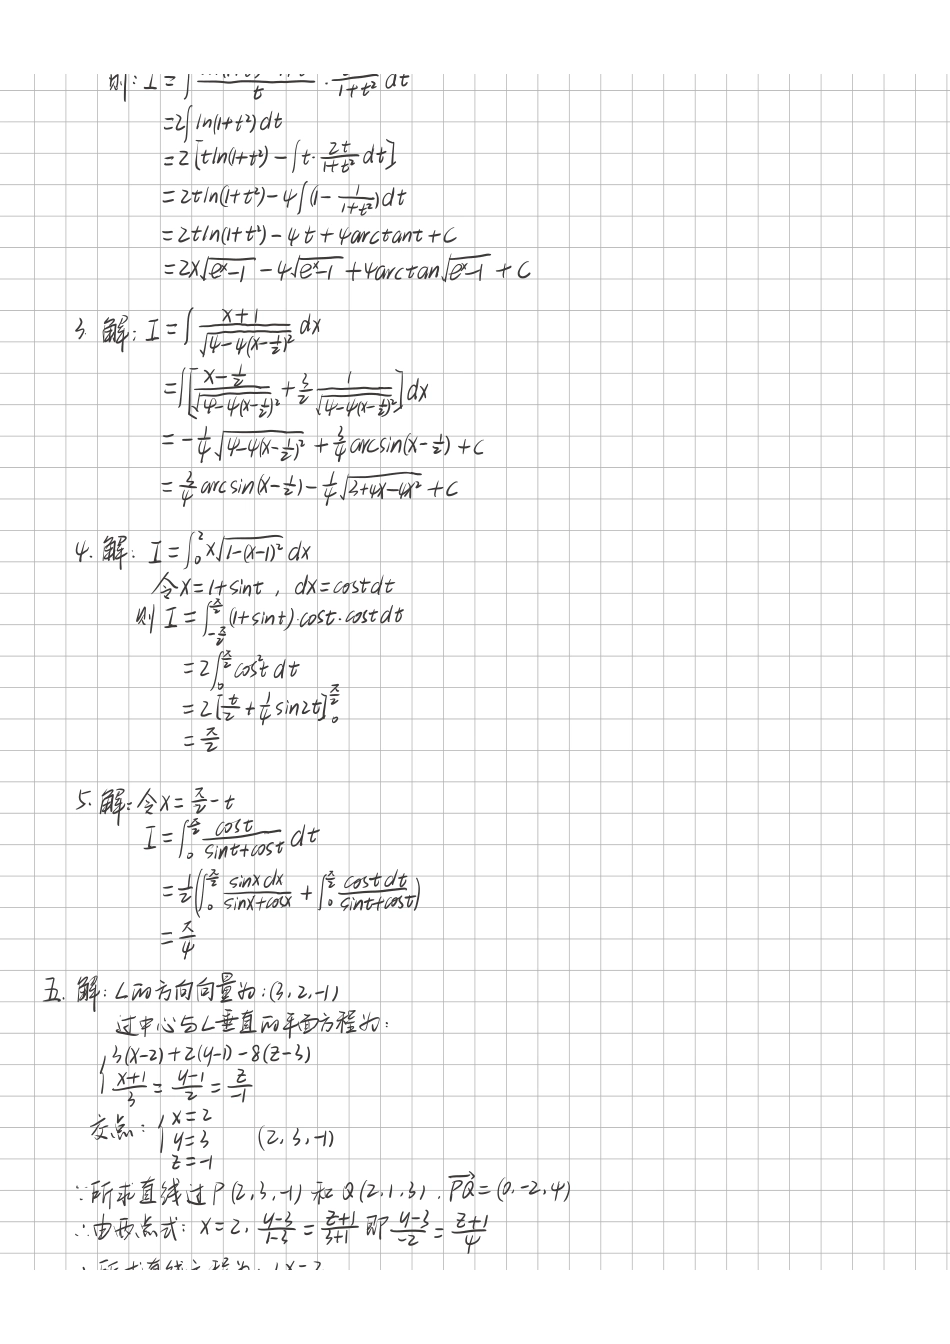 则: I = ∫ /t · /(1+t²) dt
=2∫ ln(1+t²)dt
=2[tln(1+t²) - ∫t·2t/(1+t²) dt]
= 2tln(1+t²) - 4∫(1 - 1/(1+t²))dt
= 2tln(1+t²) - 4t + 4arctant + C
= 2x√(eˣ-1) - 4√(eˣ-1) + 4arctan√(eˣ-1) + C
3. 解: I = ∫ (x+1)/√(4-4(x-1/2)²) dx
=∫[(x-1/2)/√(4-4(x-1/2)²) + 3/2 1/√(4-4(x-1/2)²)]dx
= -1/4 √(4-4(x-1/2)²) + 3/4 arcsin(x-1/2) + C
= 3/4 arcsin(x-1/2) - 1/4 √(3+4x-4x²) + C
4. 解: I = ∫₀² x√(1-(x-1)²) dx
令x=1+sint , dx=costdt
则 I = ∫_{-π/2}^{π/2} (1+sint)·cost·costdt
= 2∫₀^{π/2} cos²t dt
= 2[t/2 + 1/4 sin2t]₀^{π/2}
= π/2
5. 解: 令x = π/2 - t
I = ∫₀^{π/2} cost/(sint+cost) dt
= 1/2(∫₀^{π/2} sinxdx/(sinx+cosx) + ∫₀^{π/2} costdt/(sint+cost))
= π/4
五. 解: L的方向向量为: (3,2,-1)
过中心与L垂直的平面方程为:
{ 3(x-2)+2(y-1)-8(z-3)
(x+1)/3 = (y-1)/2 = z/-1
交点: { x=2
y=3 (2,3,-1)
z=-1
∵所求直线过P(2,3,-1) 和 Q(2,1,3). PQ→=(0,-2,4)
∴由两点式: x=2, (y-3)/(1-3) = (z+1)/(3+1) 即 (y-3)/-2 = (z+1)/4